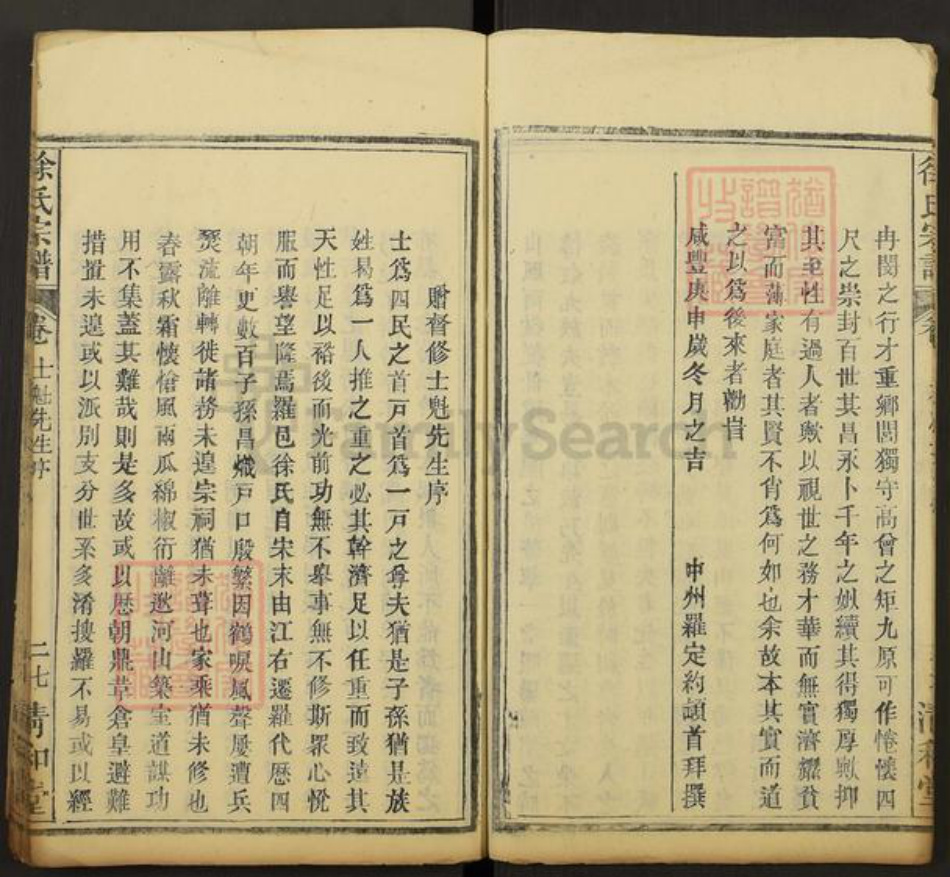 冉閔之行才重鄉閭獨守高曾之矩九原可作惓懷四
尺之崇封百世其昌永卜千年之姒續其得獨厚歟抑
其至性有過人者歟以視世之務才華而無實濟耀貧
富而薄家庭者其賢不肖爲何如也余故本其實而道
之以爲後來者勸旹
咸豐庚申歲冬月之吉 中州羅定約頓首拜撰
贈督修士魁先生序
士爲四民之首戸首爲一戸之尊夫猶是子孫猶是族
姓曷爲一人推之重之必其幹濟足以任重而致遠其
天性足以裕後而光前功無不舉事無不修斯衆心悅
服而譽望隆焉羅邑徐氏自宋末由江右遷羅代歷四
朝年更數百子孫昌熾戸口殷繁因鶴唳風聲屢遭兵
燹流離轉徙諸務未遑宗祠猶未葺也家乘猶未修也
春露秋霜懷愴風雨瓜綿椒衍離逖河山築室道謀功
用不集蓋其難哉則是多故或以歷朝鼎革倉皇避難
措置未遑或以派別支分世系多淆搜羅不易或以經
徐氏宗譜 卷 士魁先生序 二七 清和堂